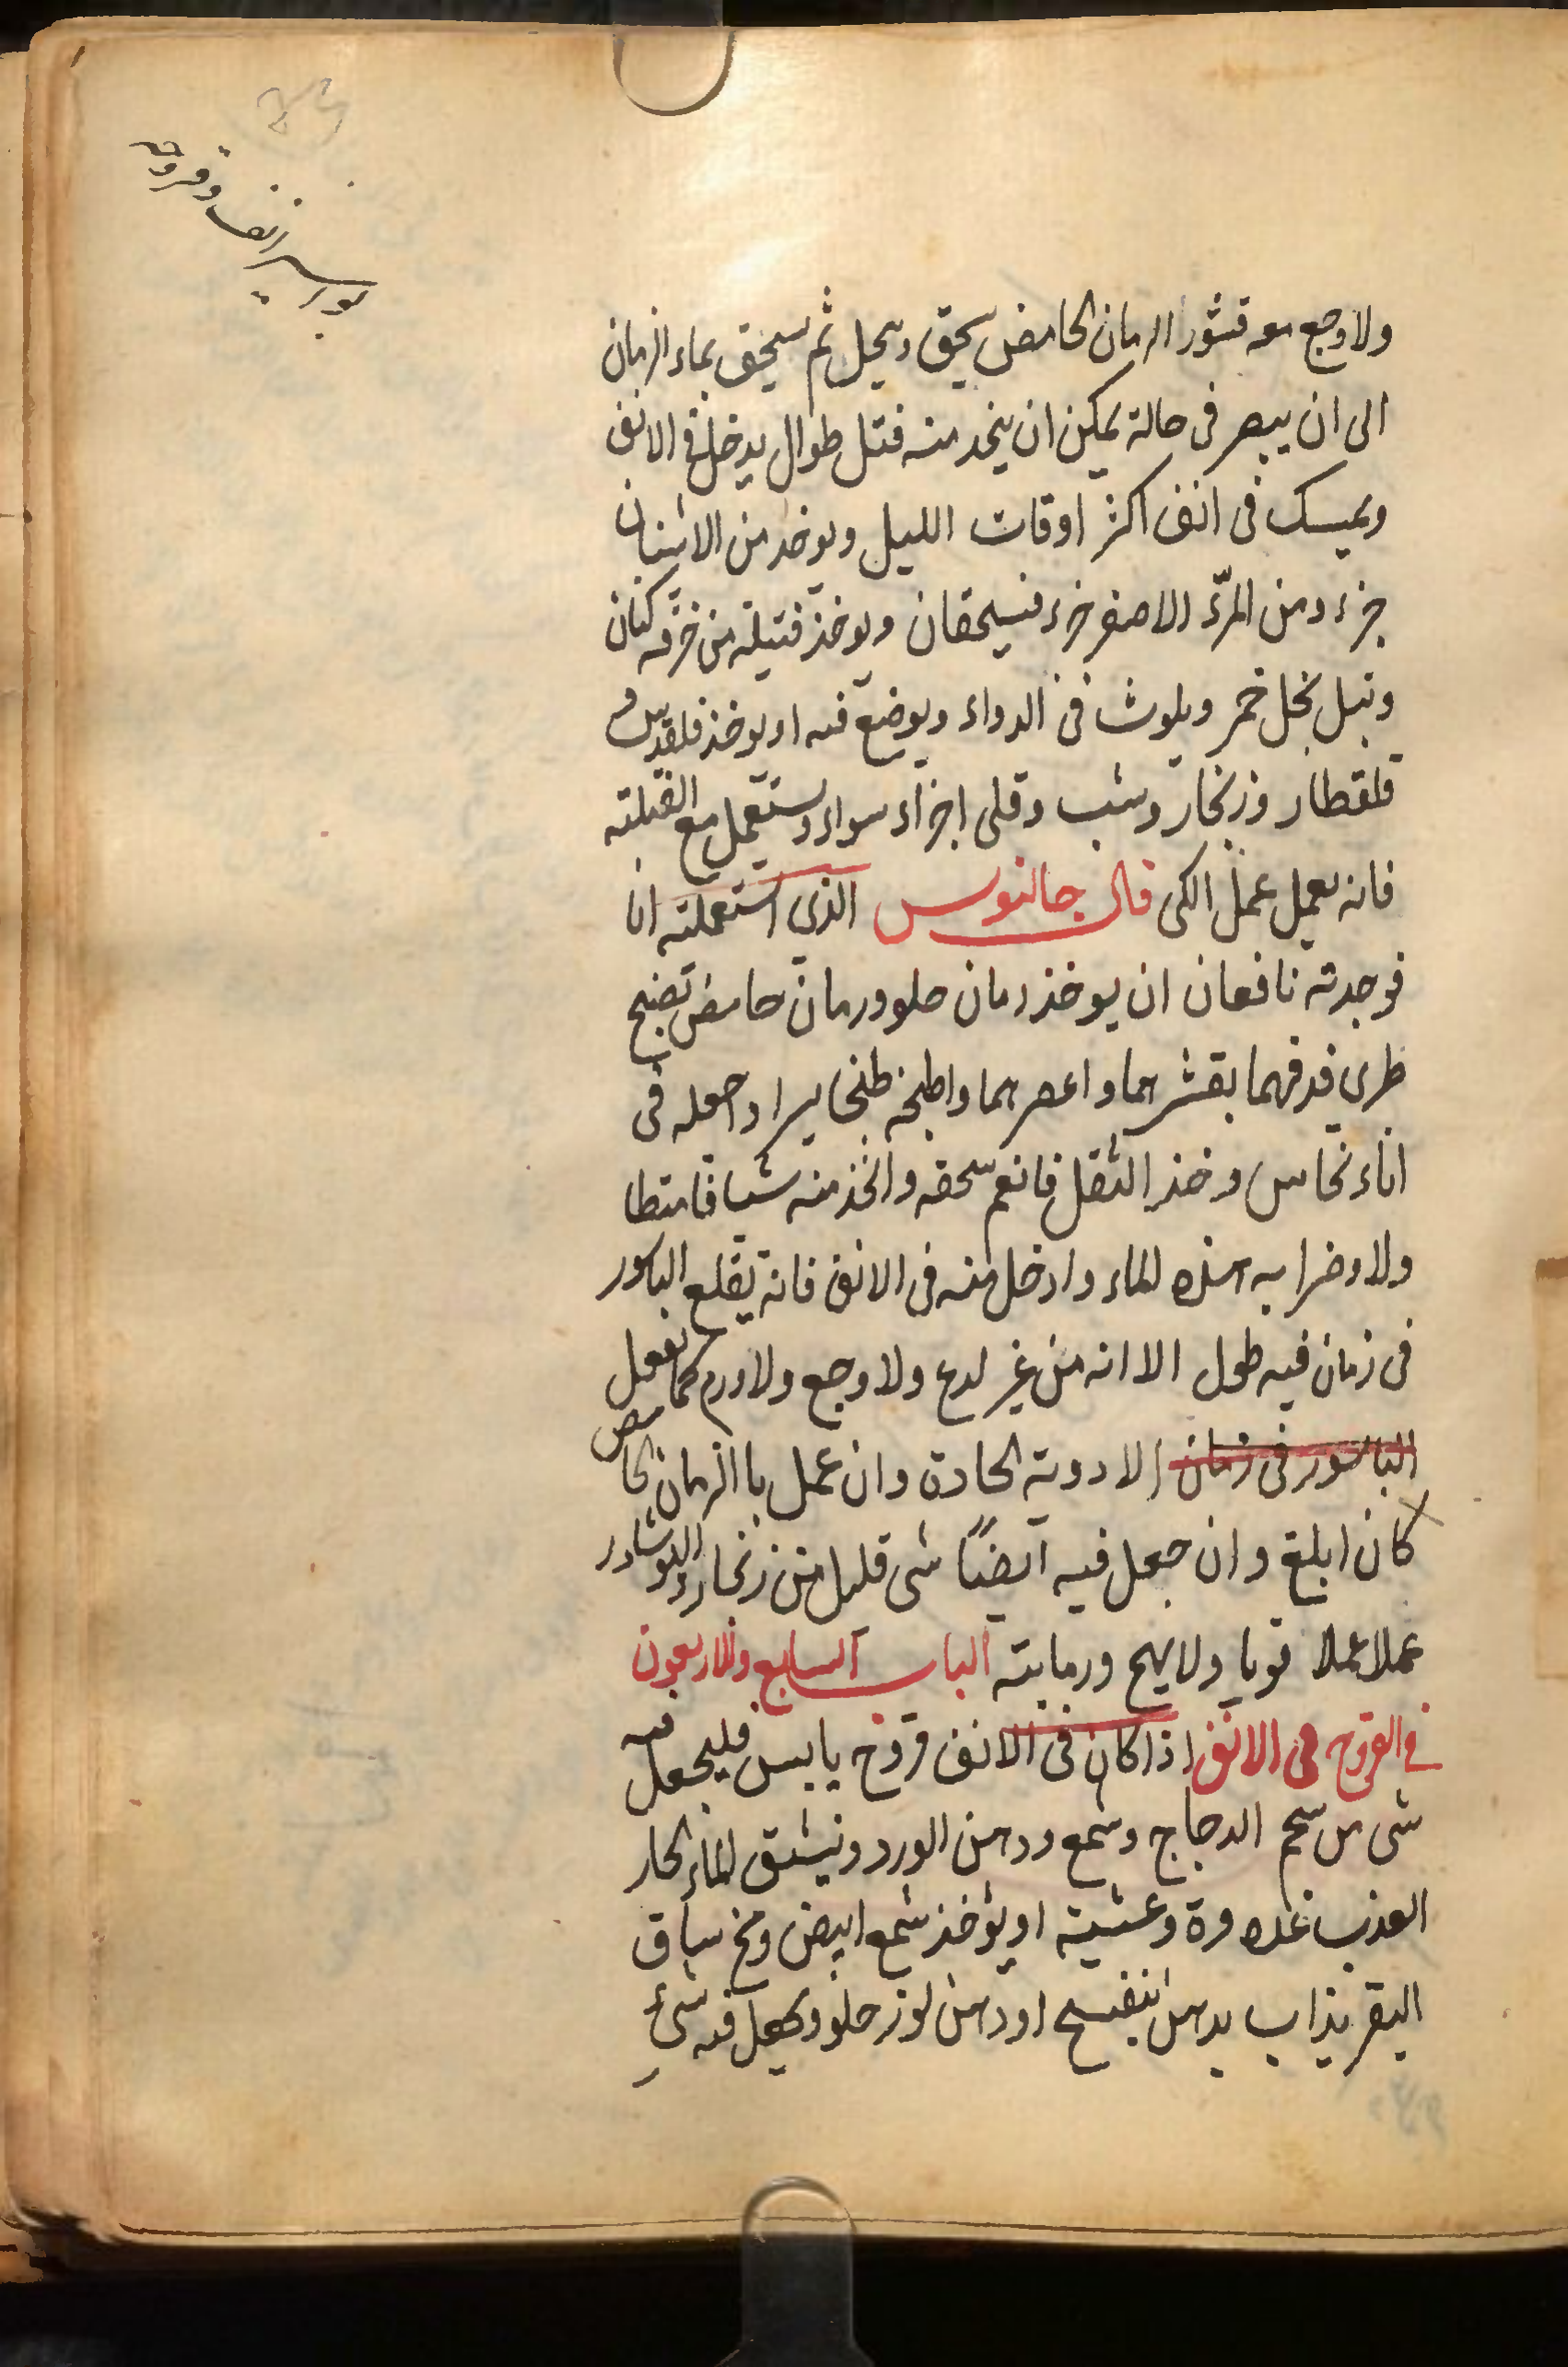 بورسير انف وقروحه
ولا وجع معه قشور الرمان الحامض يسحق ويحل ثم يسحق بماء الرمان
الى ان يبصر فى حالة يمكن ان يتخد منه فتل طوال يدخل فى الانف
ويمسك فى انف اكثر اوقات الليل ويوخد من الاشنان
جزء ومن المرّ الاصفر جزء فيسحقان ويوخذ فتيلة من خرقه كتان
وتبل بخل خمر ويلوث فى الدواء ويوضع فيه او يوخذ قلقديس و
قلقطار وزنجار وشب وقلى اجزاء سواء ويستعمل مع الفتيلته
فانه يعمل عمل الكى قال جالنوس الذى استعملته انا
فوجدته نافعان ان يوخذ رمان حلو ورمان حامض نضيج
طرى فدقهما بقشرهما واعصرهما واطبخه طبخا يسرا واجعله فى
اناء نحاس وخذ الثقل فانعم سحقه واتخذ منه شيافا متطا
ولا وضرابه بهذه الماء وادخل منه فى الانف فانه يقلع الباسور
فى زمان فيه طول الا انه من غير لدع ولا وجع ولا ورم كما تفعل
الباسور فى زمان الادوية الحادة وان عمل باالرمان الحامض
كان ابلغ وان جعل فيه ايضًا شى قليل من زنجار والنوشادر
عملا عملا قويا ولا يهيج ورمابته الباب السابع والاربعون
فى القروح فى الانف اذا كان فى الانف قروح يابس فليجعل فيه
شى من شحم الدجاج وشمع ودهن الورد ونيشق الماء الحار
العذب غدوة وعشية او يؤخذ شمع ابيض ومخ ساق
البقر يذاب بدهن بنفسج او دهن لوز حلو ويجعل فيه شىء